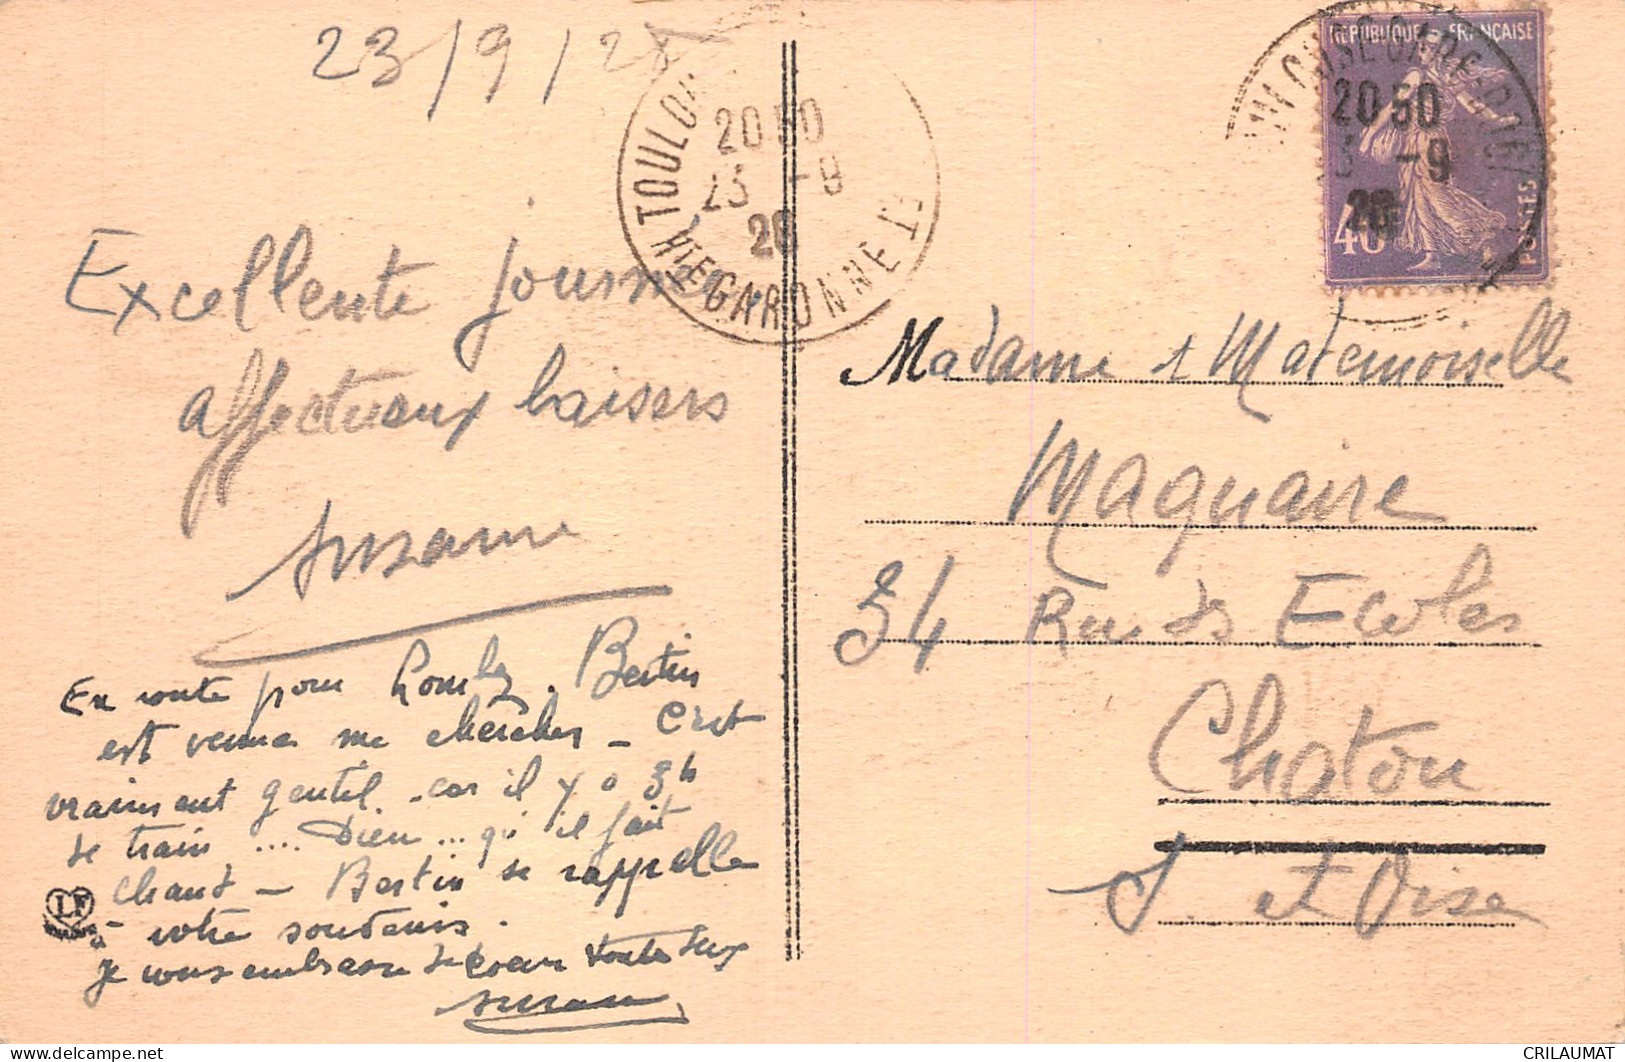 23/9/28
TOULOUSE
20 50
23 -9
28
HTE GARONNE
REPUBLIQUE FRANÇAISE
20 50
-9
28
40
POSTES
Excellente journée
affectueux baisers
Suzanne
En route pour Lombez. Bertin
est venue me chercher - C'est
vraiment gentil. car il y a 3h
de train .... Dieu ... qu'il fait
chaud - Bertin se rappelle
à votre souvenir.
Je vous embrasse de coeur toutes deux
Suzanne
LF
Madame & Mademoiselle
Maquaire
34 Rue des Ecoles
Chatou
S. et Oise
CRILAUMAT